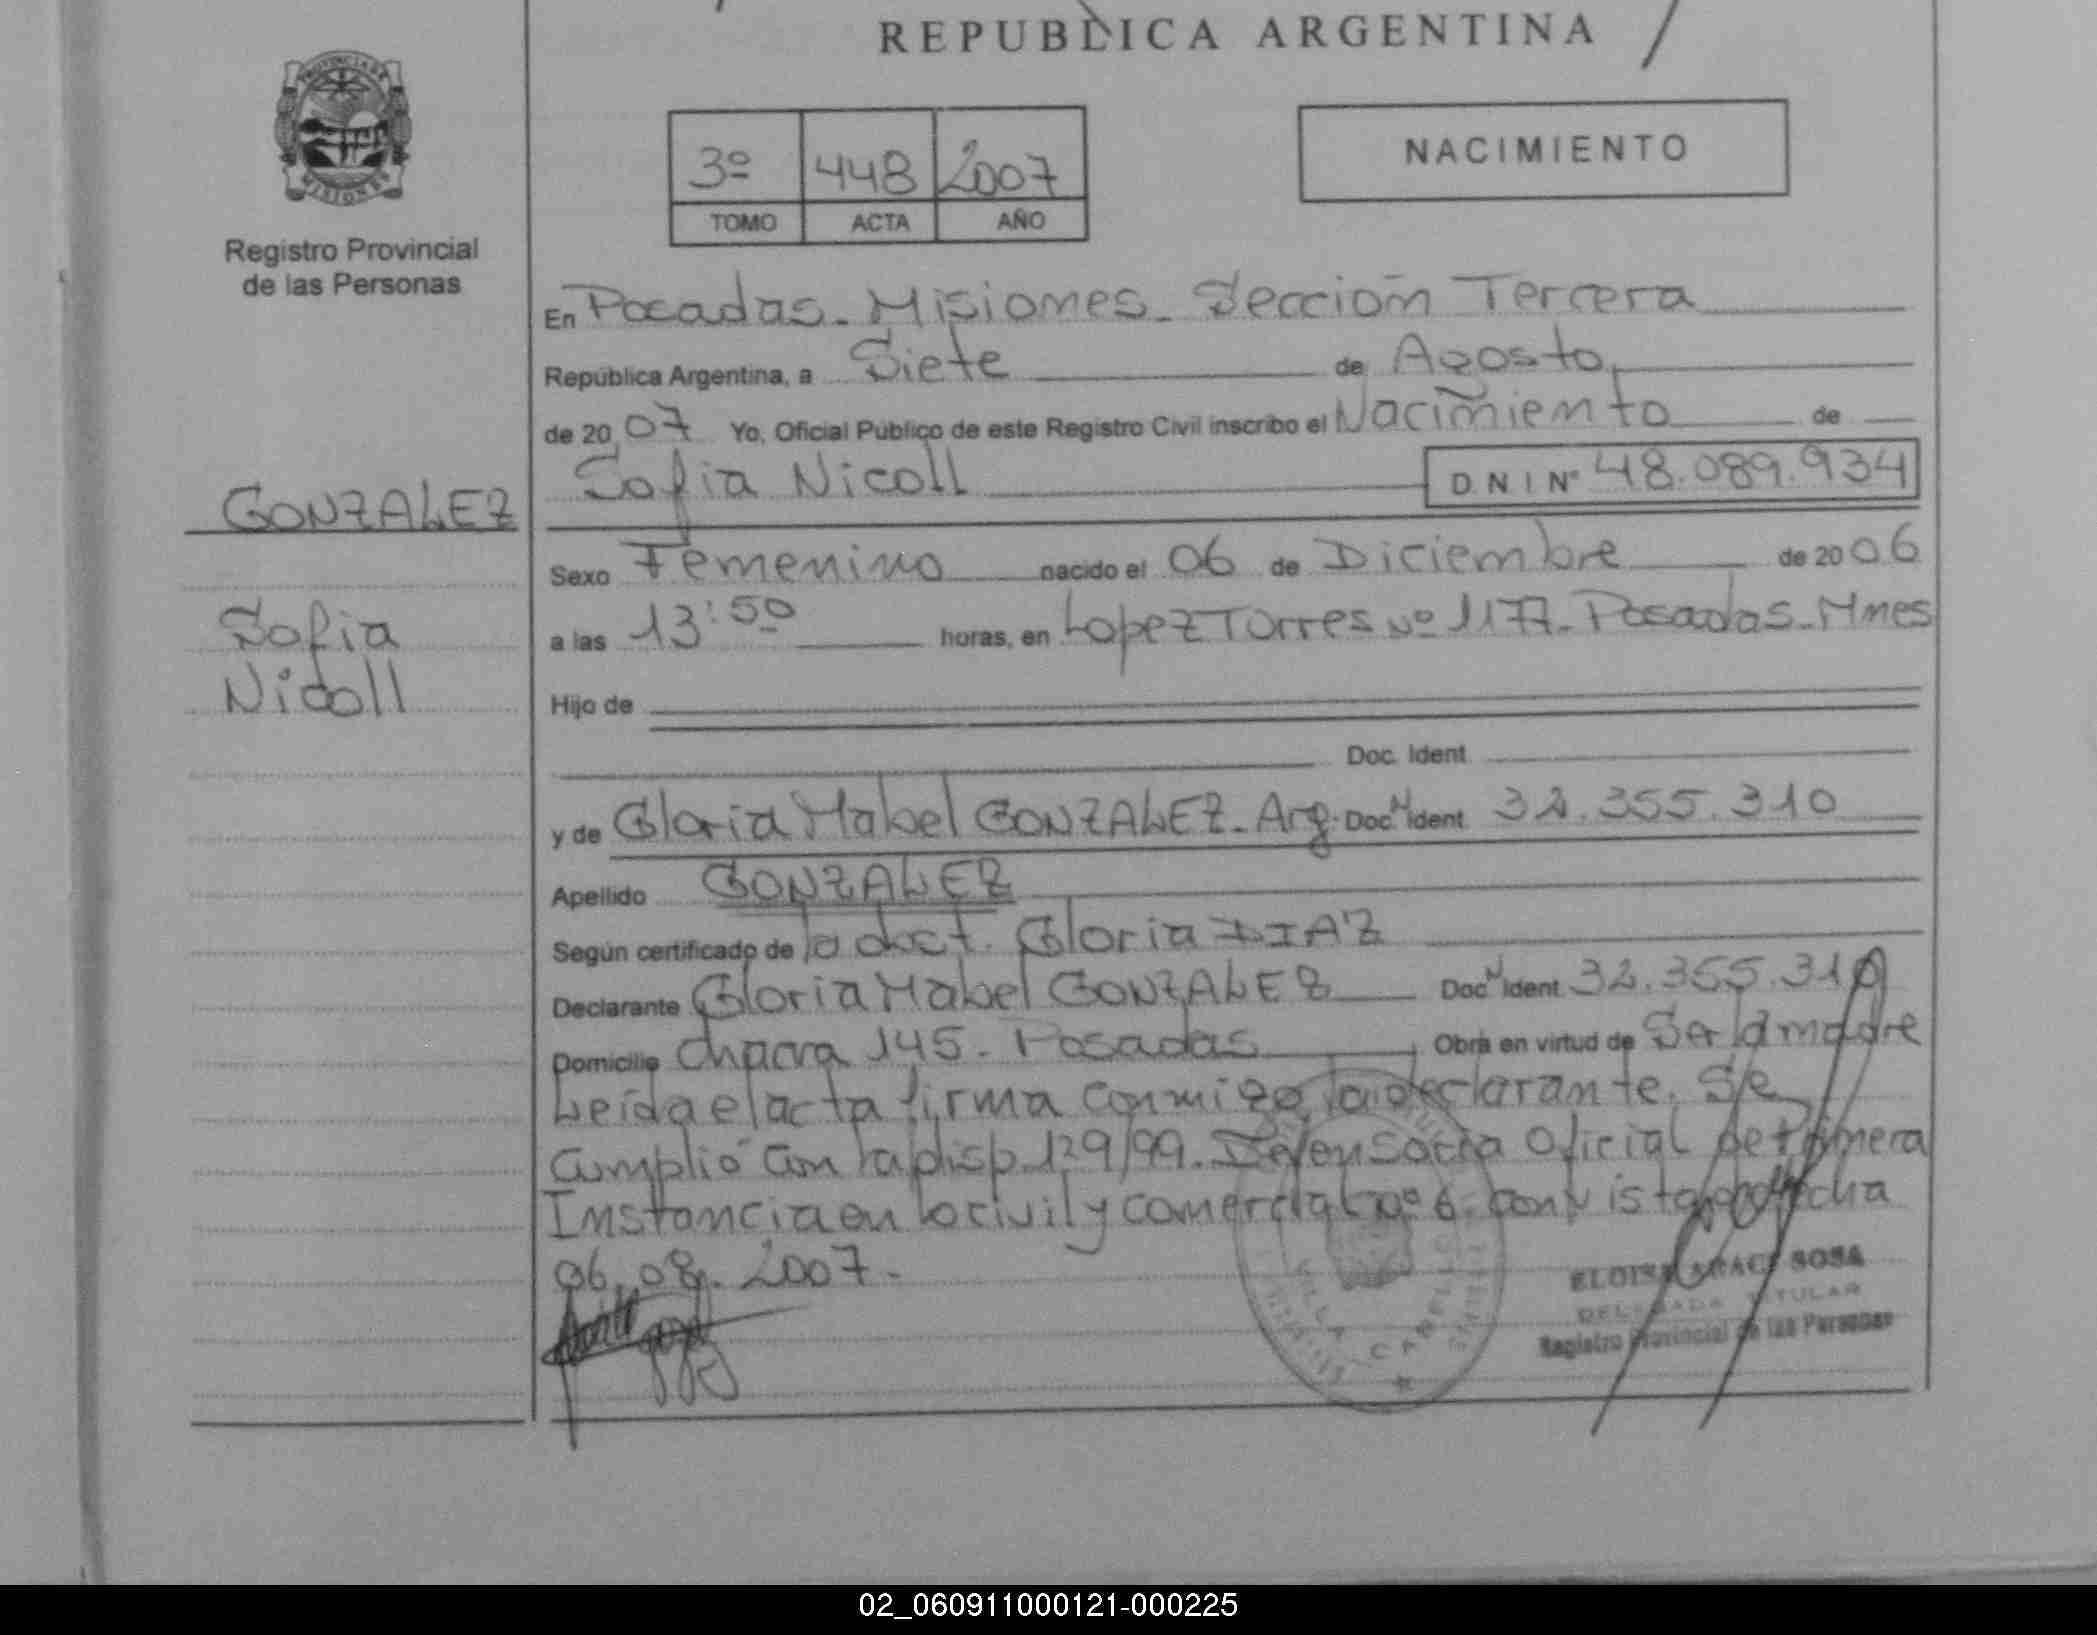 REPUBLICA ARGENTINA
PROVINCIA DE
MISIONES
Registro Provincial
de las Personas
3º 448 2007
TOMO ACTA AÑO
NACIMIENTO
En Posadas - Misiones - Sección Tercera
República Argentina, a Siete de Agosto
de 2007 Yo, Oficial Público de este Registro Civil inscribo el Nacimiento de
Sofia Nicoll D N I Nº 48.089.934
GONZALEZ
Sofia
Nicoll
Sexo Femenino nacido el 06 de Diciembre de 2006
a las 13:50 horas, en Lopez Torres Nº 1177 - Posadas - Mnes
Hijo de
Doc. Ident.
y de Gloria Mabel GONZALEZ - Arg. Doc. N Ident. 32.355.310
Apellido GONZALEZ
Según certificado de la doct. Gloria DIAZ
Declarante Gloria Mabel GONZALEZ Doc. N Ident. 32.355.310
Domicilio Chacra 145 - Posadas Obra en virtud de Ser la madre
Leida el acta firma conmigo la declarante. Se
cumplió con la disp. 129/99. Defensoria Oficial de Primera
Instancia en lo civil y comercial Nº 6. con vista fecha
06.08.2007.
VILLA CABELLO
ELOISA SOSA
DELEGADA TITULAR
Registro Provincial de las Personas
02_060911000121-000225